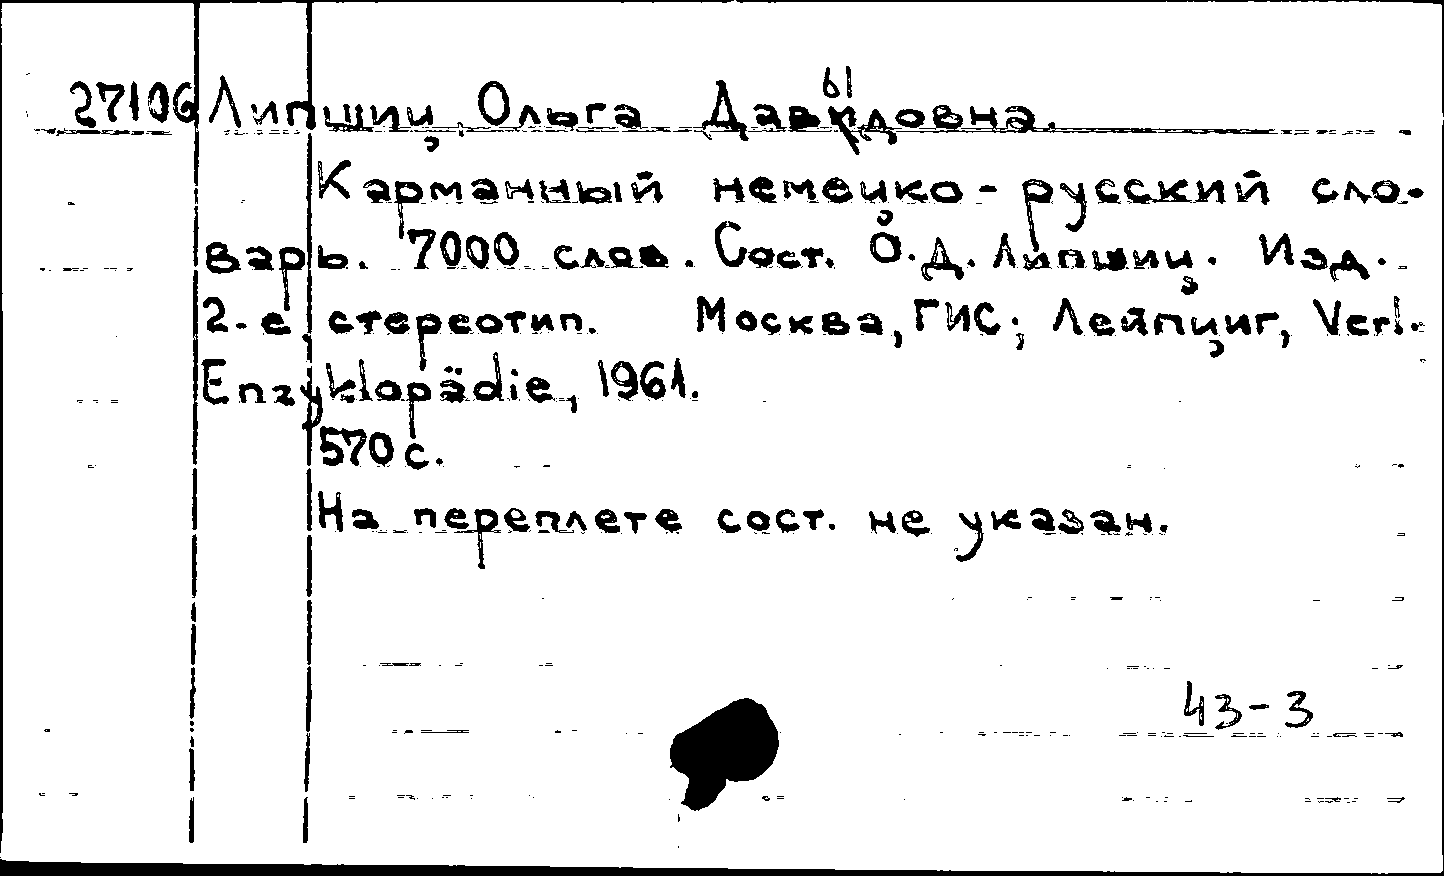 27106 Липшиц, Ольга Давыдовна.
Карманный немецко-русский сло-
варь. 7000 слов. Сост. О.Д. Липшиц. Изд.
2-е, стереотип. Москва, ГИС; Лейпциг, Verl.
Enzyklopädie, 1961.
570 с.
На переплете сост. не указан.
43-3